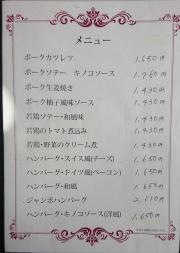 メニュー
ポークカツレツ 1,650円
ポークソテー キノコソース 1,760円
ポーク生姜焼き 1,430円
ポーク柚子風味ソース 1,430円
若鶏ソテー和風味 1,430円
若鶏のトマト煮込み 1,430円
若鶏・野菜のクリーム煮 1,430円
ハンバーグ・スイス風(チーズ) 1,650円
ハンバーグ・ドイツ風(ベーコン) 1,650円
ハンバーグ・和風 1,650円
ジャンボハンバーグ 2,110円
ハンバーグ・キノコソース(洋風) 1,650円